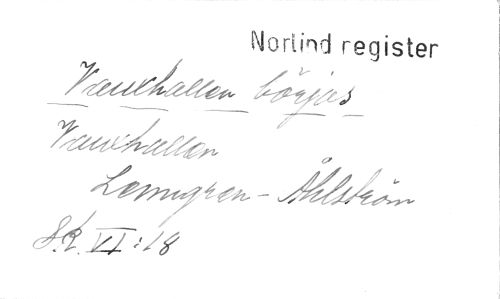 Norlind register
Vauxhallen börjas
Vauxhallen
Lonngren - Åhlström
S.R. VI:18